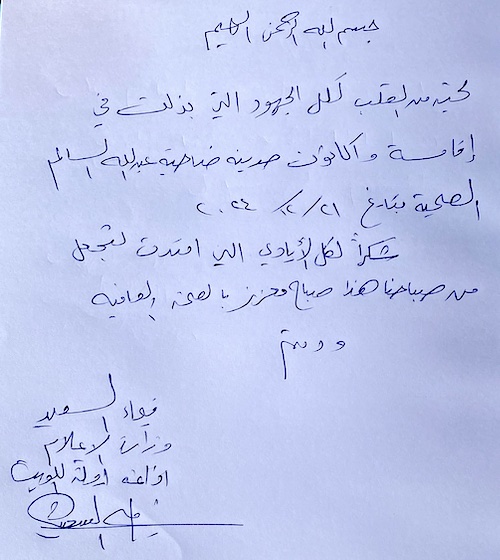 بسم الله الرحمن الرحيم
تحية من القلب لكل الجهود التي بذلت في
إقامة مدينة ضاحية عبدالله السالم
الصحية بتاريخ ٢١/١٢/٢٠٢٤
شكراً لكل الأيادي التي امتدت لتجعل
من صباحنا هذا صباح معزز بالصحة العافيه
ودمتم
السعيد
وزارة الإعلام
اذاعة دولة الكويت